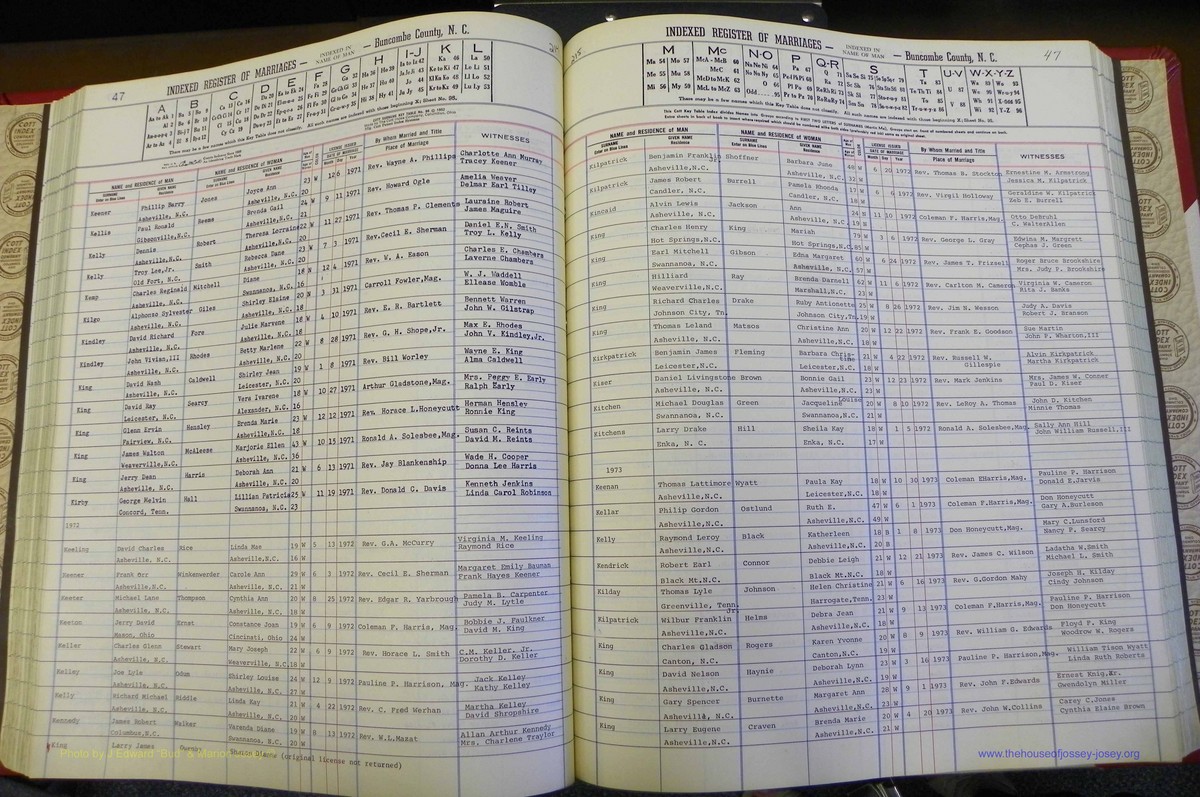 47
INDEXED REGISTER OF MARRIAGES — INDEXED IN NAME OF MAN — Buncombe County, N. C.
A B C D E F G H I-J K L
There may be a few names which this Key Table does not classify. All such names are indexed with those beginning X; Sheet No. 95.
NAME and RESIDENCE of MAN NAME and RESIDENCE of WOMAN LICENSE ISSUED By Whom Married and Title WITNESSES
SURNAME GIVEN NAME SURNAME GIVEN NAME Place of Marriage
Keener Phillip Barry Jones Joyce Ann 23 W 12 6 1971 Rev. Wayne A. Phillips Charlotte Ann Murray
Asheville, N.C. Asheville, N.C. 20 Tracey Keener
Kellis Paul Ronald Reems Brenda Gail 24 W 9 11 1971 Rev. Howard Ogle Amelia Weaver
Gibsonville,N.C. Asheville,N.C. 21 Delmar Earl Tilley
Kelly Dennis Robert Theresa Lorraine 22 W 11 27 1971 Rev. Thomas P. Clements Lauraine Robort
Asheville,N.C. Asheville,N.C. 20 James Maguire
Kelly Troy Lee,Jr. Smith Rebecca Dane 23 W 7 3 1971 Rev.Cecil E. Sherman Daniel E.N. Smith
Old Fort, N.C. Asheville, N.C. 20 Troy L. Kelly
Kemp Charles Reginald Mitchell Diane 18 W 12 4 1971 Rev. W. A. Eason Charles E. Chambers
Asheville, N.C. Swannanoa, N.C. 16 Laverne Chambers
Kilgo Alphonso Sylvester Giles Shirley Elaine 20 N 3 31 1971 Carroll Fowler,Mag. W. J. Waddell
Asheville, N.C. Asheville, N.C. 18 Ellease Womble
Kindley David Richard Fore Julie Marvene 18 W 4 10 1971 Rev. E. R. Bartlett Bennett Warren
Asheville, N.C. Asheville, N.C. 18 John W. Gilstrap
Kindley John Vivian,III Rhodes Betty Marlene 22 W 8 28 1971 Rev. G. H. Shope,Jr. Max E. Rhodes
Asheville, N.C. Asheville, N.C. 20 John V. Kindley,Jr.
King David Nash Caldwell Shirley Jean 19 W 1 8 1971 Rev. Bill Worley Wayne E. King
Asheville, N.C. Leicester, N.C. 20 Alma Caldwell
King David Ray Searcy Vera Ivarene 18 W 10 27 1971 Arthur Gladstone,Mag. Mrs. Peggy E. Early
Leicester, N.C. Alexander, N.C. 16 Ralph Early
King Glenn Ervin Hensley Brenda Marie 23 W 12 12 1971 Rev. Horace L.Honeycutt Herman Hensley
Fairview, N.C. Asheville,N.C. 18 Ronnie King
King James Walton McAleese Marjorie Ellen 43 W 10 15 1971 Ronald A. Solesbee,Mag. Susan C. Reints
Weaverville,N.C. Asheville, N.C. 36 David M. Reints
King Jerry Dean Harris Deborah Ann 21 W 6 13 1971 Rev. Jay Blankenship Wade H. Cooper
Asheville, N.C. Asheville, N.C. 20 Donna Lee Harris
Kirby George Kelvin Hall Lillian Patricia 25 W 11 19 1971 Rev. Donald C. Davis Kenneth Jenkins
Concord, Tenn. Swannanoa, N.C. 23 Linda Carol Robinson
1972
Keeling David Charles Rice Linda Mae 19 W 5 13 1972 Rev. G.A. McCurry Virginia M. Keeling
Asheville, N.C. Asheville,N.C. 16 W Raymond Rice
Keener Frank Orr Winkenwerder Carole Ann 29 W 6 3 1972 Rev. Cecil E. Sherman Margaret Emily Bauman
Asheville, N.C. Asheville, N.C. 21 W Frank Hayes Keener
Keeter Michael Lane Thompson Cynthia Ann 20 W 8 25 1972 Rev. Edgar R. Yarbrough Pamela B. Carpenter
Asheville, N.C. Asheville, N.C. 18 W Judy M. Lytle
Keeton Jerry David Ernst Constance Joan 19 W 6 9 1972 Coleman F. Harris, Mag. Bobbie J. Faulkner
Mason, Ohio Cincinati, Ohio 24 W David M. King
Keller Charles Glenn Stewart Mary Joseph 22 W 6 9 1972 Rev. Horace L. Smith C.M. Keller, Jr.
Asheville, N.C. Weaverville, N.C. 18 W Dorothy D. Keller
Kelley Joe Lyle Odum Shirley Louise 24 W 12 5 1972 Pauline P. Harrison, Mag. Jack Kelley
Asheville, N.C. Asheville, N.C. 27 W Kathy Kelley
Kelly Richard Michael Biddle Linda Kay 21 W 4 22 1972 Rev. C. Fred Werhan Martha Kelley
Asheville, N.C. Asheville, N.C. 20 W David Shropshire
Kennedy James Robert Walker Varenda Diane 19 W 8 13 1972 Rev. W.L.Mazat Allan Arthur Kennedy
Columbus,N.C. Swannanoa, N.C. 20 W Mrs. Charlene Traylor
King Larry James Sharon Diane (original license not returned)
Photo by J Edward "Bud" & Marion Josey
INDEXED REGISTER OF MARRIAGES — INDEXED IN NAME OF MAN — Buncombe County, N. C.
47
M Mc N-O P Q-R S T U-V W-X-Y-Z
There may be a few names which this Key Table does not classify. All such names are indexed with those beginning X; Sheet No. 95.
NAME and RESIDENCE of MAN NAME and RESIDENCE of WOMAN LICENSE ISSUED DATE OF MARRIAGE By Whom Married and Title WITNESSES
SURNAME GIVEN NAME Residence SURNAME GIVEN NAME Residence Month Day Year Place of Marriage
Kilpatrick Benjamin Franklin Shoffner Barbara June 44 W 6 20 1972 Rev. Thomas B. Stockton Ernestine M. Armstrong
Asheville,N.C. Asheville, N.C. 32 W Jessica M. Kilpatrick
Kilpatrick James Robert Burrell Pamela Rhonda 17 W 6 6 1972 Rev. Virgil Holloway Geraldine W. Kilpatrick
Candler, N.C. Candler, N.C. 18 W Zeb E. Burrell
Kincaid Alvin Lewis Jackson Ann 24 N 11 10 1972 Coleman F. Harris,Mag. Otto DeBruhl
Asheville, N.C. Asheville, N.C. 19 N C. WalterAllen
King Charles Henry King Mariah 79 W 3 6 1972 Rev. George L. Gray Edwina M. Margrett
Hot Springs,N.C. Hot Springs,N.C. 85 W Cephas J. Green
King Earl Mitchell Gibson Edna Margaret 60 W 6 24 1972 Rev. James T. Frizsell Roger Bruce Brookshire
Swannanoa, N.C. Asheville, N.C. 57 W Mrs. Judy P. Brookshire
King Hilliard Ray Brenda Darnell 62 W 11 6 1972 Rev. Carlton M. Cameron Virginia W. Cameron
Weaverville, N.C. Marshall,N.C. 23 W Rita J. Banks
King Richard Charles Drake Ruby Antionette 25 W 8 26 1972 Rev. Jim B. Wesson Judy A. Davis
Johnson City, Tn. Johnson City,Tn. 19 W Robert J. Branson
King Thomas Leland Matsos Christine Ann 20 W 12 22 1972 Rev. Frank E. Goodson Sue Martin
Asheville, N.C. Asheville, N.C. 18 W John P. Wharton,III
Kirkpatrick Benjamin James Fleming Barbara Christine 21 W 4 22 1972 Rev. Russell W. Gillespie Alvin Kirkpatrick
Leicester,N.C. Leicester, N.C. 18 W Martha Kirkpatrick
Kiser Daniel Livingstone Brown Bonnie Gail 23 W 12 23 1972 Rev. Mark Jenkins Mrs. James W. Conner
Asheville, N.C. Asheville, N.C. 23 W Paul D. Kiser
Kitchen Michael Douglas Green Jacqueline Louise 20 W 8 10 1972 Rev. LeRoy A. Thomas John D. Kitchen
Swannanoa, N.C. Swannanoa,N.C. 21 W Minnie Thomas
Kitchens Larry Drake Hill Sheila Kay 18 W 1 5 1972 Ronald A. Solesbee,Mag. Sally Ann Hill
Enka, N.C. Enka, N.C. 17 W John William Russell,III
1973
Keenan Thomas Lattimore Wyatt Paula Kay 18 W 10 30 1973 Coleman EHarris,Mag. Pauline P. Harrison
Asheville,N.C. Leicester,N.C. 18 W Donald E.Jarvis
Kellar Philip Gordon Ostlund Ruth E. 47 W 6 1 1973 Coleman F.Harris,Mag. Don Honeycutt
Asheville,N.C. Asheville,N.C. 49 W Gary A.Burleson
Kelly Raymond Leroy Black Katherleen 18 B 1 8 1973 Don Honeycutt,Mag. Mary C.Lunsford
Asheville,N.C. Asheville,N.C. 20 B Nancy P. Searcy
Kendrick Robert Earl Connor Debbie Leigh 21 W 12 21 1973 Rev. James C. Wilson Ladatha W.Smith
Black Mt,N.C. Black Mt,N.C. 18 W Michael L. Smith
Kilday Thomas Lyle Johnson Helen Christine 21 W 6 16 1973 Rev. G.Gordon Mahy Joseph H. Kilday
Greenville, Tenn. Harrogate,Tenn. 23 W Cindy Johnson
Kilpatrick Wilbur Franklin Jr. Helms Debra Jean 21 W 9 13 1973 Coleman F,Harris,Mag. Pauline P. Harrison
Asheville,N.C. Asheville,N.C. 18 W Don Honeycutt
King Charles Gladson Rogers Karen Yvonne 20 W 8 9 1973 Rev. William G. Edwards Floyd P. King
Canton, N.C. Canton,N.C. 19 W Woodrow W. Rogers
King David Nelson Haynie Deborah Lynn 23 W 3 16 1973 Pauline P. Harrison,Mag. William Tison Wyatt
Asheville,N.C. Asheville,N.C. 19 W Linda Ruth Roberts
King Gary Spencer Burnette Margaret Ann 28 W 9 1 1973 Rev. John F.Edwards Ernest Knig,Sr.
Asheville, N.C. Asheville,N.C. 23 W Gwendolyn Miller
King Larry Eugene Craven Brenda Marie 20 W 4 20 1973 Rev. John W.Collins Carey C.Jones
Asheville,N.C. Asheville,N.C. 21 W Cynthia Elaine Brown
www.thehouseofjossey-josey.org